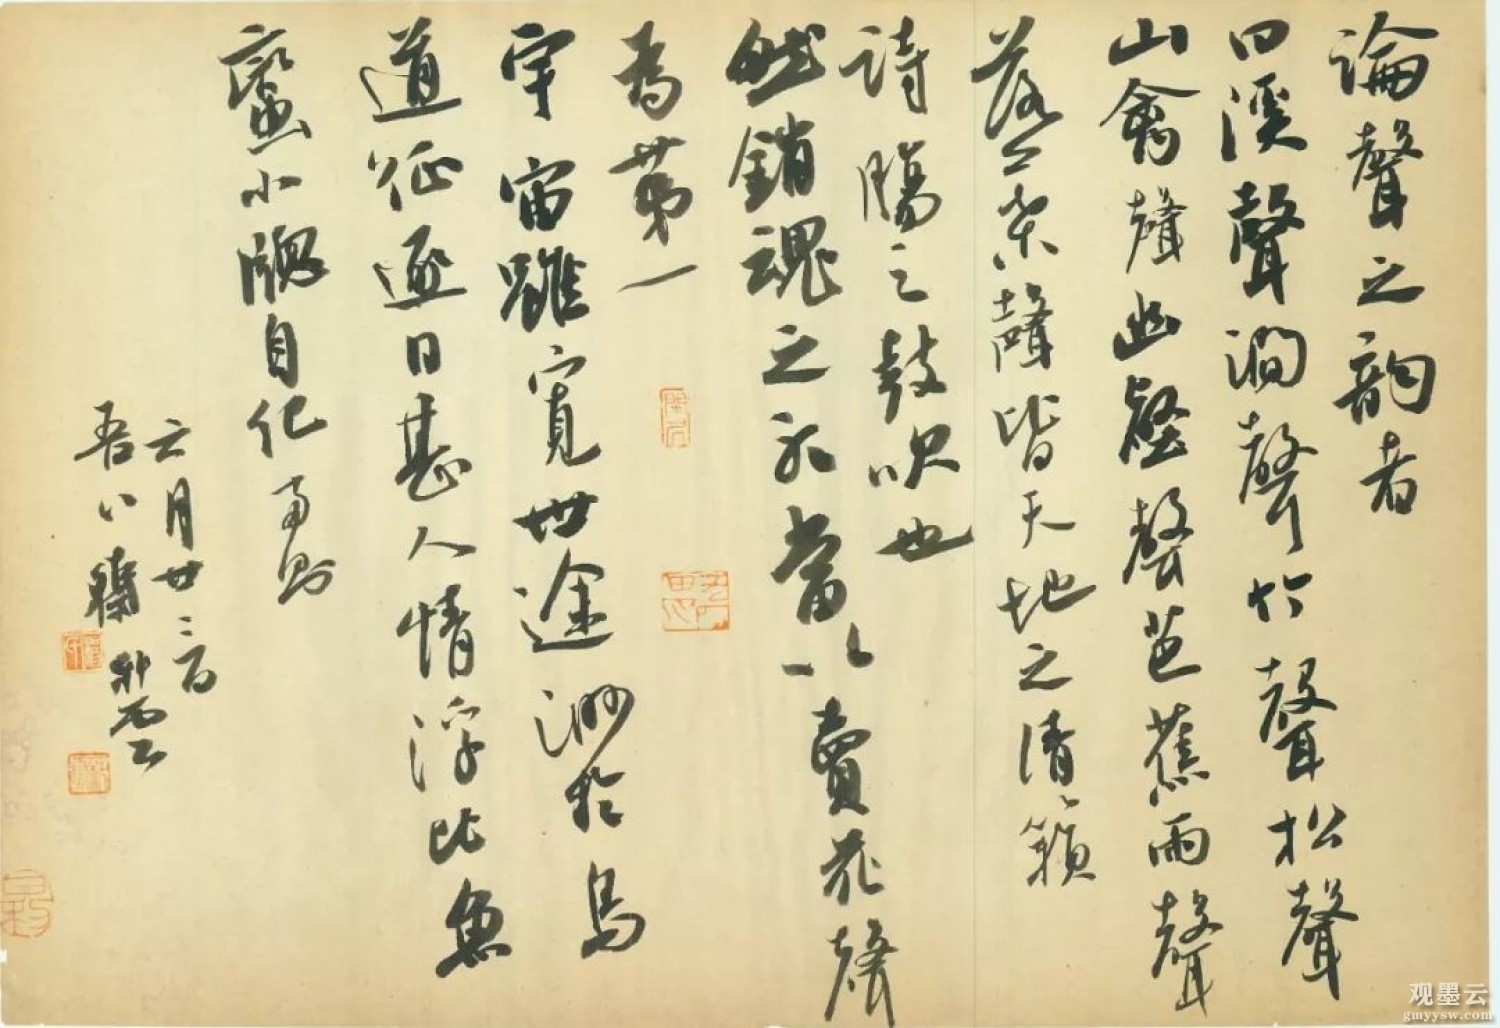 論聲之韻者
曰溪聲澗聲竹聲松聲
山禽聲幽壑聲芭蕉雨聲
落葉聲皆天地之清籟
詩腸之鼓吹也
然銷魂之聽當以賣花聲
為第一
宇宙雖寬世途渺於鳥
道征逐日甚人情浮比魚
蠻小牕自紀兩則
六月廿二日
观墨云
gmyysw.com